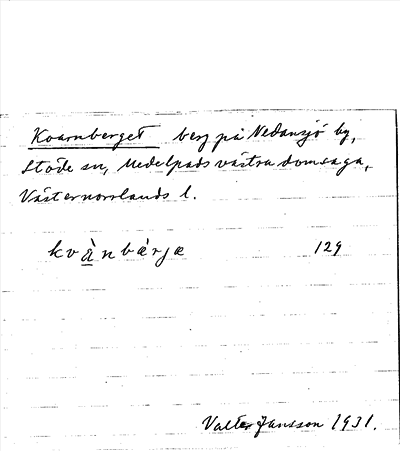 Kvarnberget berg på Nedansjö by,
Stöde sn, Medelpads västra domsaga,
Västernorrlands l.
kvànbærjæ 129
Valter Jansson 1931.